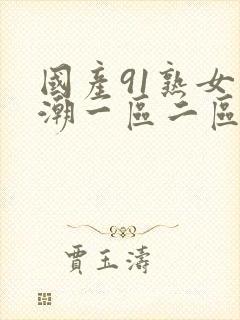 國產91熟女
潮一區二區
賈玉濤